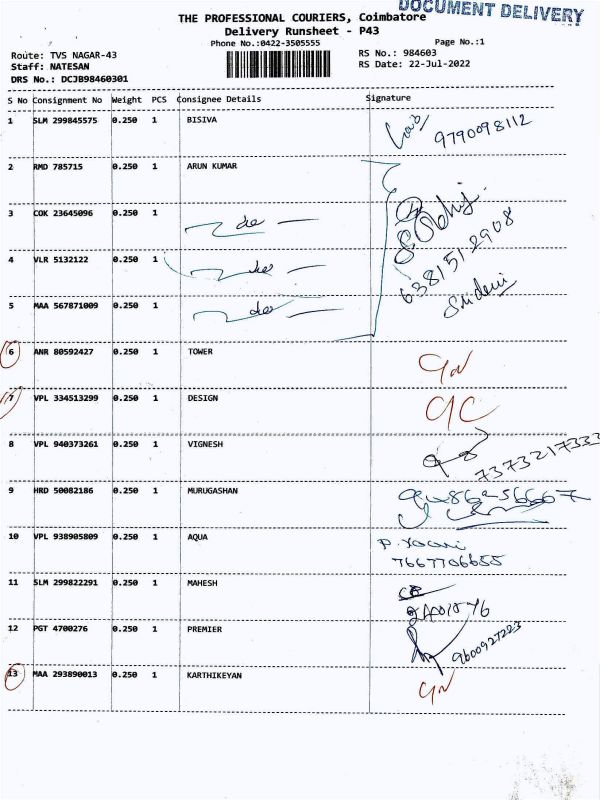 DOCUMENT DELIVERY
THE PROFESSIONAL COURIERS, Coimbatore
Delivery Runsheet - P43
Phone No.:0422-3505555
Page No.:1
Route: TVS NAGAR-43
RS No.: 984603
Staff: NATESAN
RS Date: 22-Jul-2022
DRS No.: DCJB98460301
S No Consignment No Weight PCS Consignee Details Signature
1 SLM 299845575 0.250 1 BISIVA
9790098112
2 RMD 785715 0.250 1 ARUN KUMAR
3 COK 23645096 0.250 1 do
4 VLR 5132122 0.250 1 do
6381512908
5 MAA 567871009 0.250 1 do
Sridevi
6 ANR 80592427 0.250 1 TOWER
7 VPL 334513299 0.250 1 DESIGN
8 VPL 940373261 0.250 1 VIGNESH
7373217333
9 HRD 50082186 0.250 1 MURUGASHAN
10 VPL 938905809 0.250 1 AQUA
7667706655
11 SLM 299822291 0.250 1 MAHESH
12 PGT 4700276 0.250 1 PREMIER
9600927223
13 MAA 293890013 0.250 1 KARTHIKEYAN